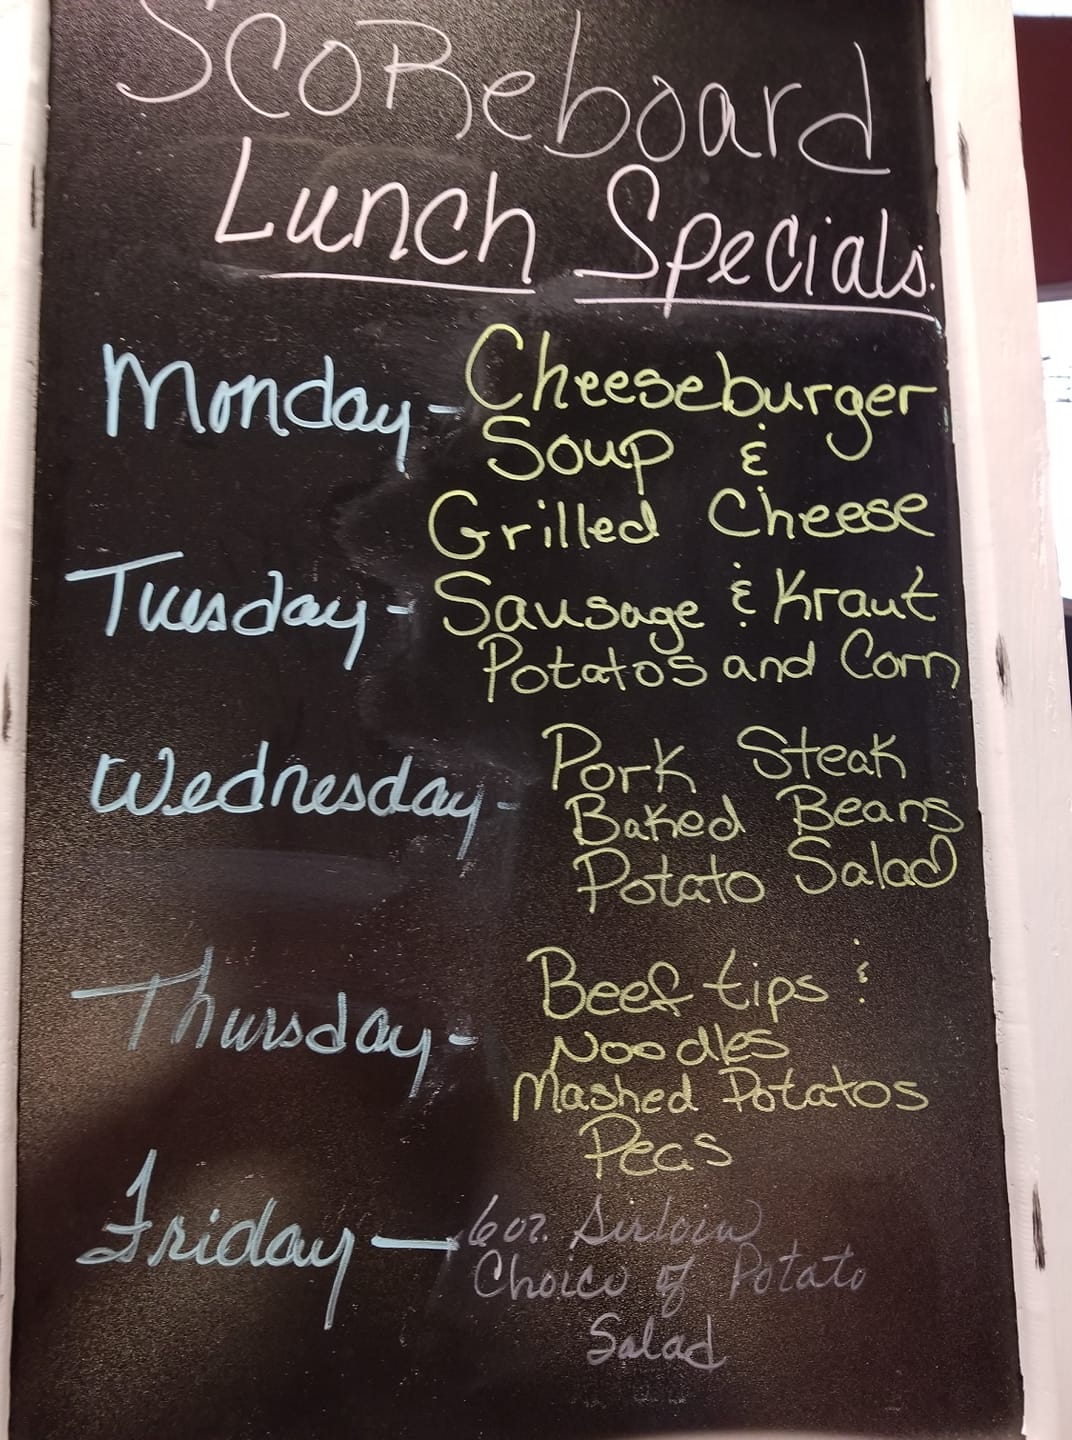 ScoReboard
Lunch Specials.
Monday - Cheeseburger
Soup &
Grilled Cheese
Tuesday - Sausage & Kraut
Potatos and Corn
Wednesday - Pork Steak
Baked Beans
Potato Salad
Thursday - Beef tips &
Noodles
Mashed Potatos
Peas
Friday — 6oz. Sirloin
Choice of Potato
Salad